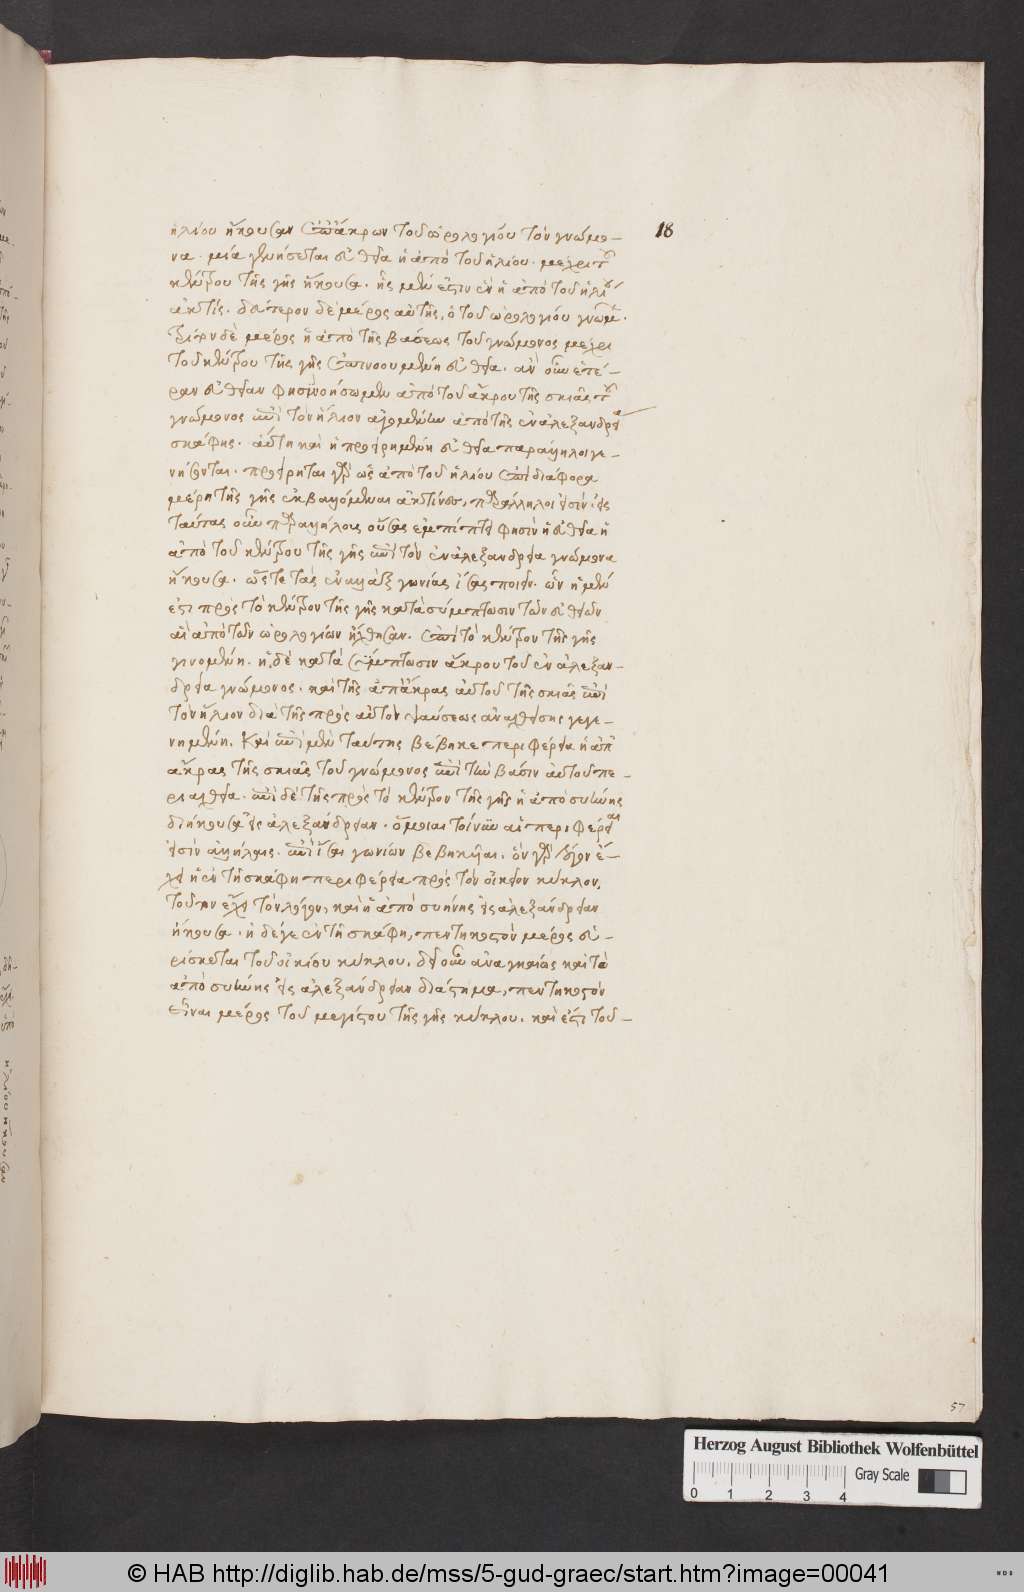 ἡλίου ἥκουσαν ἐπ' ἄκρων τοῦ ὡρολογίου τὸν γνώμο- 18
να. μία γενήσεται εὐθεῖα ἡ ἀπὸ τοῦ ἡλίου. μέχρι τοῦ
κέντρου τῆς γῆς ἥκουσα. ἧς μὲν ἐστιν ἡ ἀπὸ τοῦ ἡλίου
ἀκτίς. δεύτερον δὲ μέρος αὐτῆς, ὁ τοῦ ὡρολογίου γνώμων.
τρίτον δὲ μέρος ἡ ἀπὸ τῆς βάσεως τοῦ γνώμονος μέχρι
τοῦ κέντρου τῆς γῆς ἐπινοουμένη εὐθεῖα. ἂν οὖν ἑτέ-
ραν εὐθεῖαν φησὶ νοήσωμεν ἀπὸ τοῦ ἄκρου τῆς σκιᾶς τοῦ
γνώμονος ἐπὶ τὸν ἥλιον ἀγομένην ἀπὸ τῆς ἐν ἀλεξανδρεία
σκάφης. αὕτη καὶ ἡ προειρημένη εὐθεῖα παράλληλοι γε-
νήσονται. προείρηται γὰρ ὡς ἀπὸ τοῦ ἡλίου ἐπὶ διάφορα
μέρη τῆς γῆς ἐκβαλλόμεναι ἀκτῖνες, παράλληλοι εἰσίν. εἰς
ταύτας οὖν παραλλήλους οὔσας ἐμπίπτει φησὶν ἡ εὐθεῖα ἡ
ἀπὸ τοῦ κέντρου τῆς γῆς ἐπὶ τὸν ἐν ἀλεξανδρεία γνώμονα
ἥκουσα. ὥστε τὰς ἐναλλὰξ γωνίας ἴσας ποιεῖν. ὧν ἡ μὲν
ἐστι πρὸς τὸ κέντρον τῆς γῆς κατὰ σύμπτωσιν τῶν εὐθειῶν
αἳ ἀπὸ τῶν ὡρολογίων ἤχθησαν. ἐπὶ τὸ κέντρον τῆς γῆς
γινομένη. ἡ δὲ κατὰ σύμπτωσιν ἄκρου τοῦ ἐν ἀλεξαν-
δρεία γνώμονος. καὶ τῆς ἀπ' ἄκρας αὐτοῦ τῆς σκιᾶς ἐπὶ
τὸν ἥλιον διὰ τῆς πρὸς αὐτὸν ψαύσεως ἀναχθείσης γεγε-
νημένη. Καὶ ἐπὶ μὲν ταύτης βέβηκε περιφέρεια ἡ ἀπ'
ἄκρας τῆς σκιᾶς τοῦ γνώμονος ἐπὶ τὴν βάσιν αὐτοῦ πε-
ριαχθεῖσα. ἐπὶ δὲ τῆς πρὸς τὸ κέντρον τῆς γῆς ἡ ἀπὸ συήνης
διήκουσα εἰς ἀλεξάνδρειαν. ὅμοιαι τοίνυν αἱ περιφέρειαι
εἰσὶν ἀλλήλαις. ἐπὶ ἴσαι γωνιῶν βεβηκυῖαι. ὃν γὰρ λόγον ἔ-
χει ἡ ἐν τῆ σκάφη περιφέρεια πρὸς τὸν οἰκεῖον κύκλον.
τοῦτον ἔχει τὸν λόγον, καὶ ἡ ἀπὸ συήνης εἰς ἀλεξάνδρειαν
ἥκουσα. ἡ δέ γε ἐν τῆ σκάφη, πεντηκοστὸν μέρος εὑ-
ρίσκεται τοῦ οἰκείου κύκλου. δεῖ οὖν ἀναγκαίως καὶ τὸ
ἀπὸ συήνης εἰς ἀλεξάνδρειαν διάστημα, πεντηκοστὸν
εἶναι μέρος τοῦ μεγίστου τῆς γῆς κύκλου. καὶ ἔστι τοῦ-
57
Herzog August Bibliothek Wolfenbüttel
Gray Scale
0 1 2 3 4
© HAB http://diglib.hab.de/mss/5-gud-graec/start.htm?image=00041